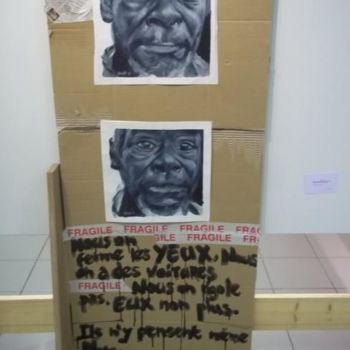 FRAGILE FRAGILE FRAGILE FRAGILE
FRAGILE FRAGILE FRAGILE
Nous on
ferme les YEUX. Nous
on a des voitures.
FRAGILE Nous on rgole
pas. EUX non plus.
Ils n'y pensent même